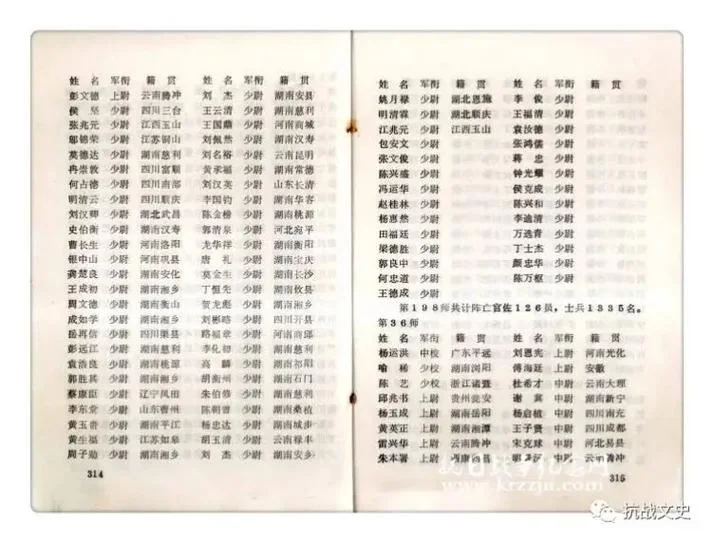 姓名 军衔 籍贯 姓名 军衔 籍贯
彭文德 上尉 云南腾冲 刘杰 少尉 湖南安县
侯坚 少尉 四川三台 王云清 少尉 湖南慈利
张兆元 少尉 江西玉山 王国鼎 少尉 河南商城
邬锦荣 少尉 江苏铜山 刘佩然 少尉 湖南汉寿
莫德达 少尉 湖南慈利 刘名裕 少尉 云南昆明
冉崇敦 少尉 四川富顺 黄承福 少尉 湖南常德
何占德 少尉 四川南部 刘汉英 少尉 山东长清
明清云 少尉 四川顺庆 李国钧 少尉 湖南华容
刘汉卿 少尉 湖北武昌 陈金榜 少尉 湖南桃源
史伯衡 少尉 湖南汉寿 郭清泉 少尉 河北宛平
曹长生 少尉 河南洛阳 龙华祥 少尉 湖南衡阳
银中山 少尉 河南巩县 唐礼 少尉 湖南宝庆
龚楚良 少尉 湖南安化 莫金生 少尉 湖南长沙
王成初 少尉 湖南湘乡 丁恒先 少尉 湖南攸县
周文德 少尉 湖南衡山 贺龙彪 少尉 湖南湘乡
成如学 少尉 湖南湘乡 刘彬略 少尉 四川开县
岳再信 少尉 四川渠县 路福章 少尉 河南商邱
彭远江 少尉 湖南慈利 李化初 少尉 湖南慈利
袁浩良 少尉 湖南桃源 高麟 少尉 湖南祁阳
郭胜其 少尉 湖南湘乡 胡衡州 少尉 湖南石门
蔡康臣 少尉 辽宁凤田 朱伯修 少尉 湖南慈利
李东堂 少尉 山东曹州 陈朝曾 少尉 湖南桑植
黄玉贵 少尉 湖南平江 杨忠达 少尉 湖南城步
黄生福 少尉 江苏如皋 胡玉清 少尉 云南禄丰
周子勋 少尉 湖南湘乡 刘杰 少尉 湖南安乡
314
姓名 军衔 籍贯 姓名 军衔 籍贯
姚月禄 少尉 湖北恩施 李俊 少尉
明清霖 少尉 湖北顺庆 王福清 少尉
江兆元 少尉 江西玉山 袁汝德 少尉
包安文 少尉 张鸿儒 少尉
张文俊 少尉 蒋忠 少尉
陈兴盛 少尉 钟光耀 少尉
冯运华 少尉 侯克成 少尉
赵桂林 少尉 陈兴和 少尉
杨惠然 少尉 李迪清 少尉
田福廷 少尉 万选青 少尉
梁德胜 少尉 丁士杰 少尉
郭良中 少尉 颜忠华 少尉
何忠道 少尉 陈万枢 少尉
王德成 少尉
第198师共计阵亡官佐126员,士兵1335名。
第36师
姓名 军衔 籍贯 姓名 军衔 籍贯
杨运洪 中校 广东平远 刘恩宪 上尉 河南光化
喻稀 少校 湖南浏阳 傅海廷 上尉 安徽
陈艺 少校 浙江诸暨 杜希才 中尉 云南大理
邱兆书 上尉 贵州瓮安 谢冀 中尉 湖南新宁
杨玉成 上尉 湖南岳阳 杨启植 中尉 四川南充
黄英正 上尉 湖南湘潭 王子贤 中尉 四川成都
雷兴华 上尉 云南腾冲 宋克球 中尉 河北易县
朱本署 上尉 西康 中尉 云南腾冲
抗日战争纪念网
www.krzzjn.com
315
抗战文史